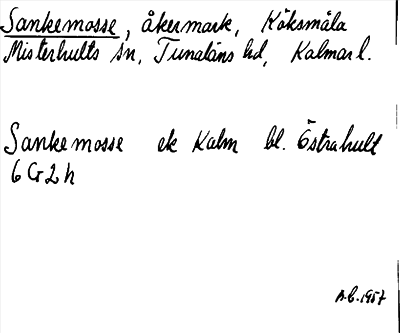 Sankemosse, åkermark, Köksmåla
Misterhults sn, Tunaläns hd, Kalmar l.
Sankemosse ek Kalm bl. Östrahult
6 G 2 h
A.C. 1957